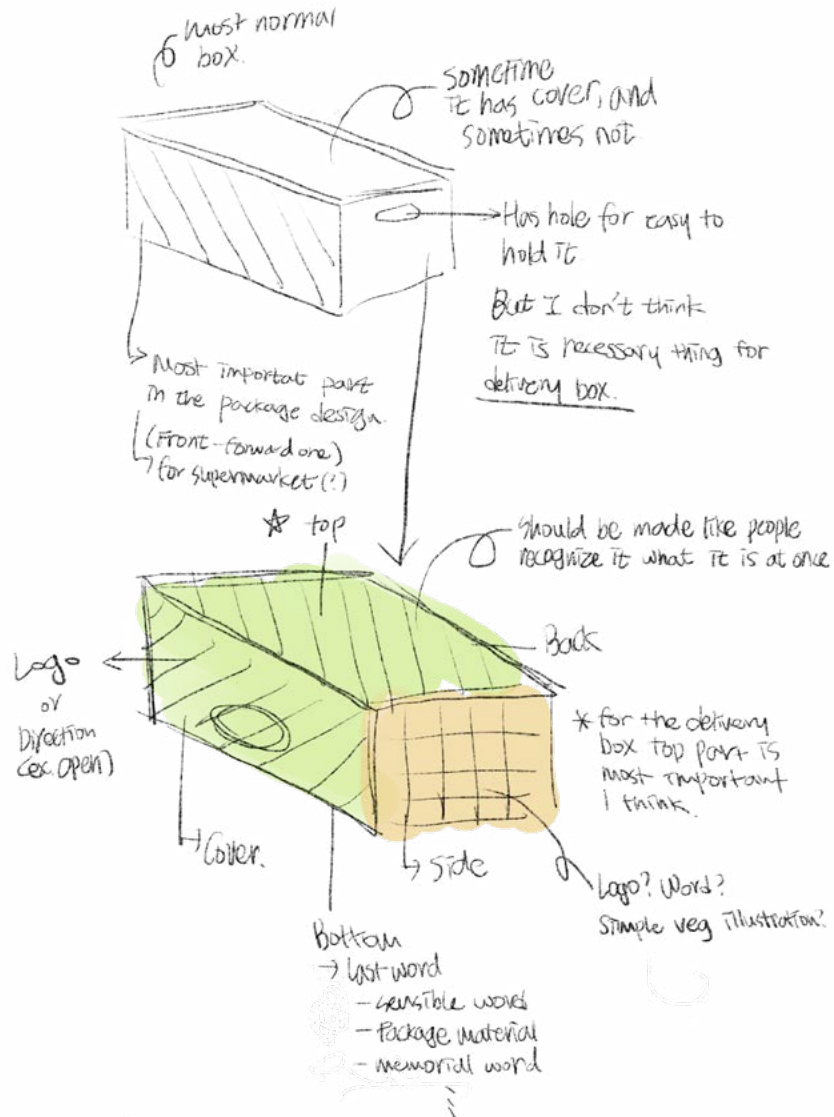 most normal
box.
sometime
it has cover, and
sometimes not.
Has hole for easy to
hold it.
But I don't think
it is necessary thing for
delivery box.
Most importat part
in the package design.
(Front-forward one)
for supermarket(!)
☆ top
should be made like people
recognize it what it is at once
Back
Logo
or
Direction
(ex. open)
* for the delivery
box top part is
most important
I think.
Cover.
Side
Logo? Word?
Simple veg illustration?
Bottom
→ Last word
- sensible word
- Package material
- memorial word